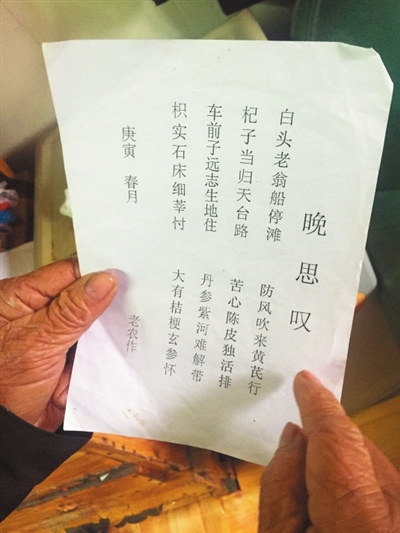 晚思叹
白头老翁船停滩 防风吹来黄芪行
杞子当归天台路 苦心陈皮独活排
车前子远志生地住 丹参紫河难解带
枳实石床细莘忖 大有桔梗玄参怀
庚寅 春月 老农作